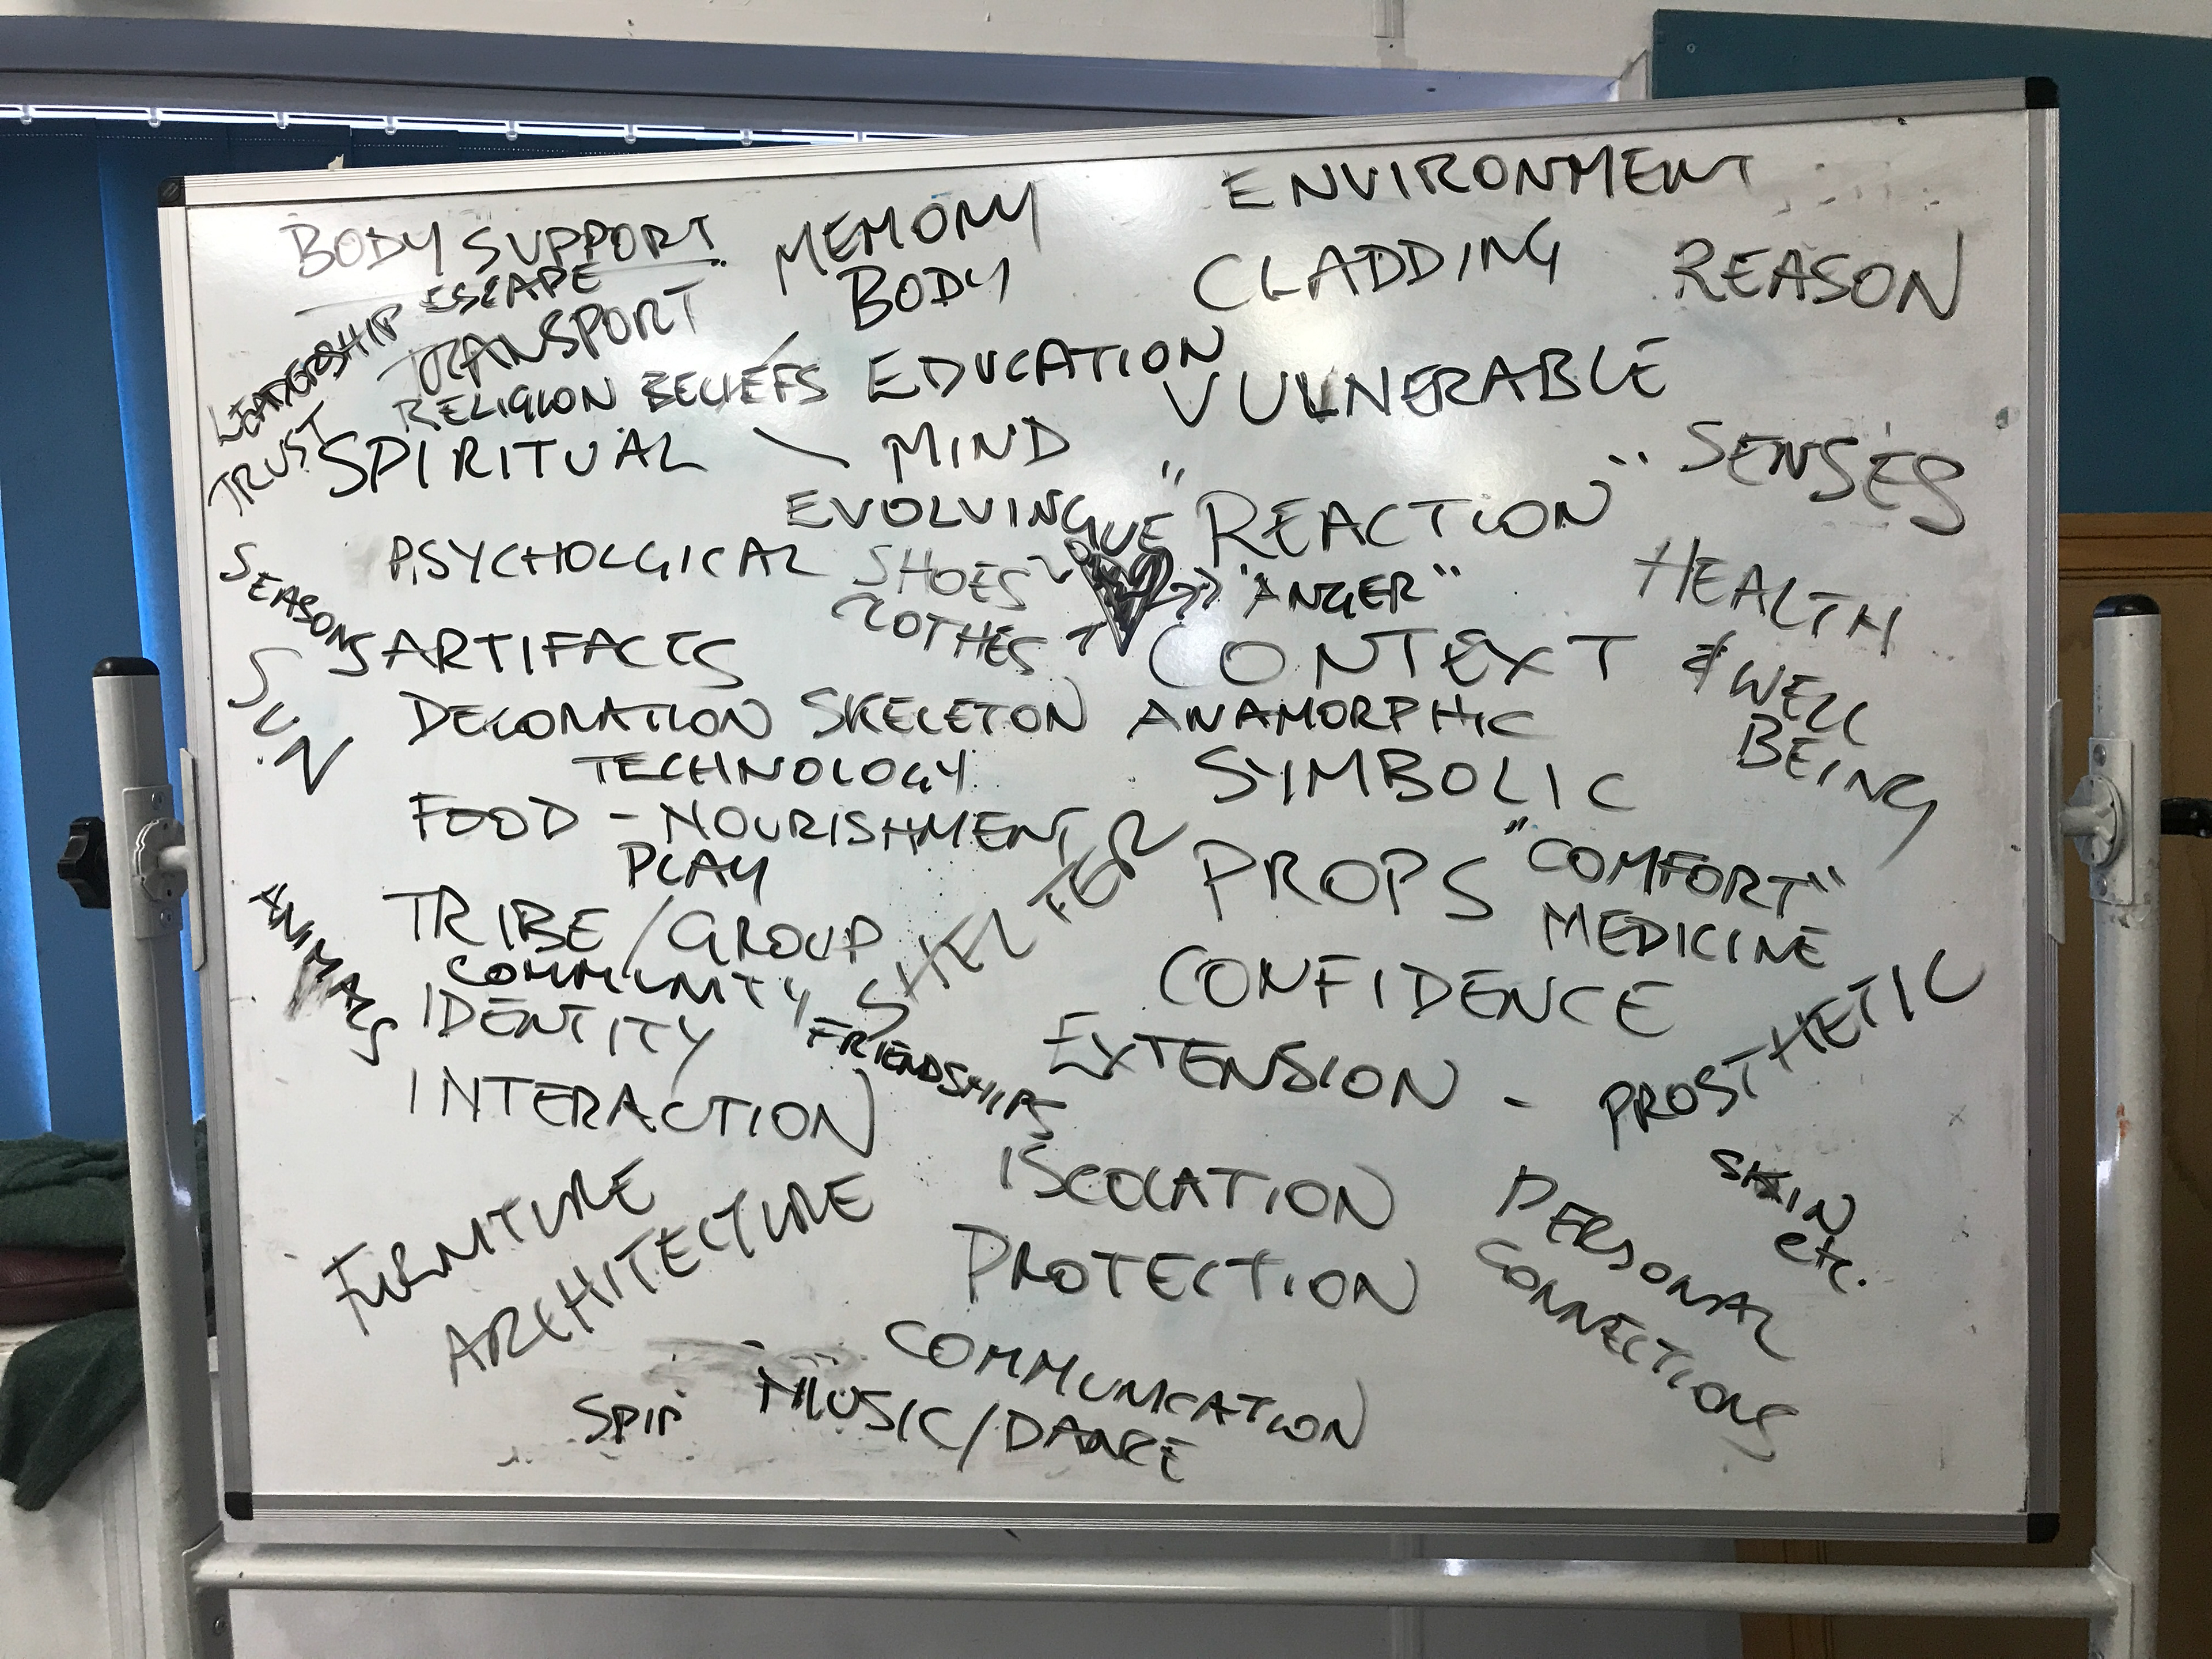 ENVIRONMENT
BODY SUPPORT
MEMORY
CLADDING
REASON
ESCAPE
BODY
LEADERSHIP
TRANSPORT
RELIGION BELIEFS
EDUCATION
VULNERABLE
TRUST
SPIRITUAL
MIND
SENSES
EVOLVING
"REACTION"
PSYCHOLGICAL
SHOES
"ANGER"
HEALTH
SEASONS
CLOTHES
ARTIFACTS
CONTEXT
& WELL
BEING
SUN
DECORATION SKELETON ANAMORPHIC
TECHNOLOGY
SYMBOLIC
FOOD - NOURISHMENT
PLAY
SHELTER
PROPS
"COMFORT"
MEDICINE
ANIMALS
TRIBE / GROUP
COMMUNITY
CONFIDENCE
IDENTITY
FRIENDSHIPS
EXTENSION - PROSTHETIC
SKIN
etc.
INTERACTION
ISCOLATION
PERSONAL
CONNECTIONS
FURNITURE
ARCHITECTURE
PROTECTION
COMMUNICATION
MUSIC/DANCE